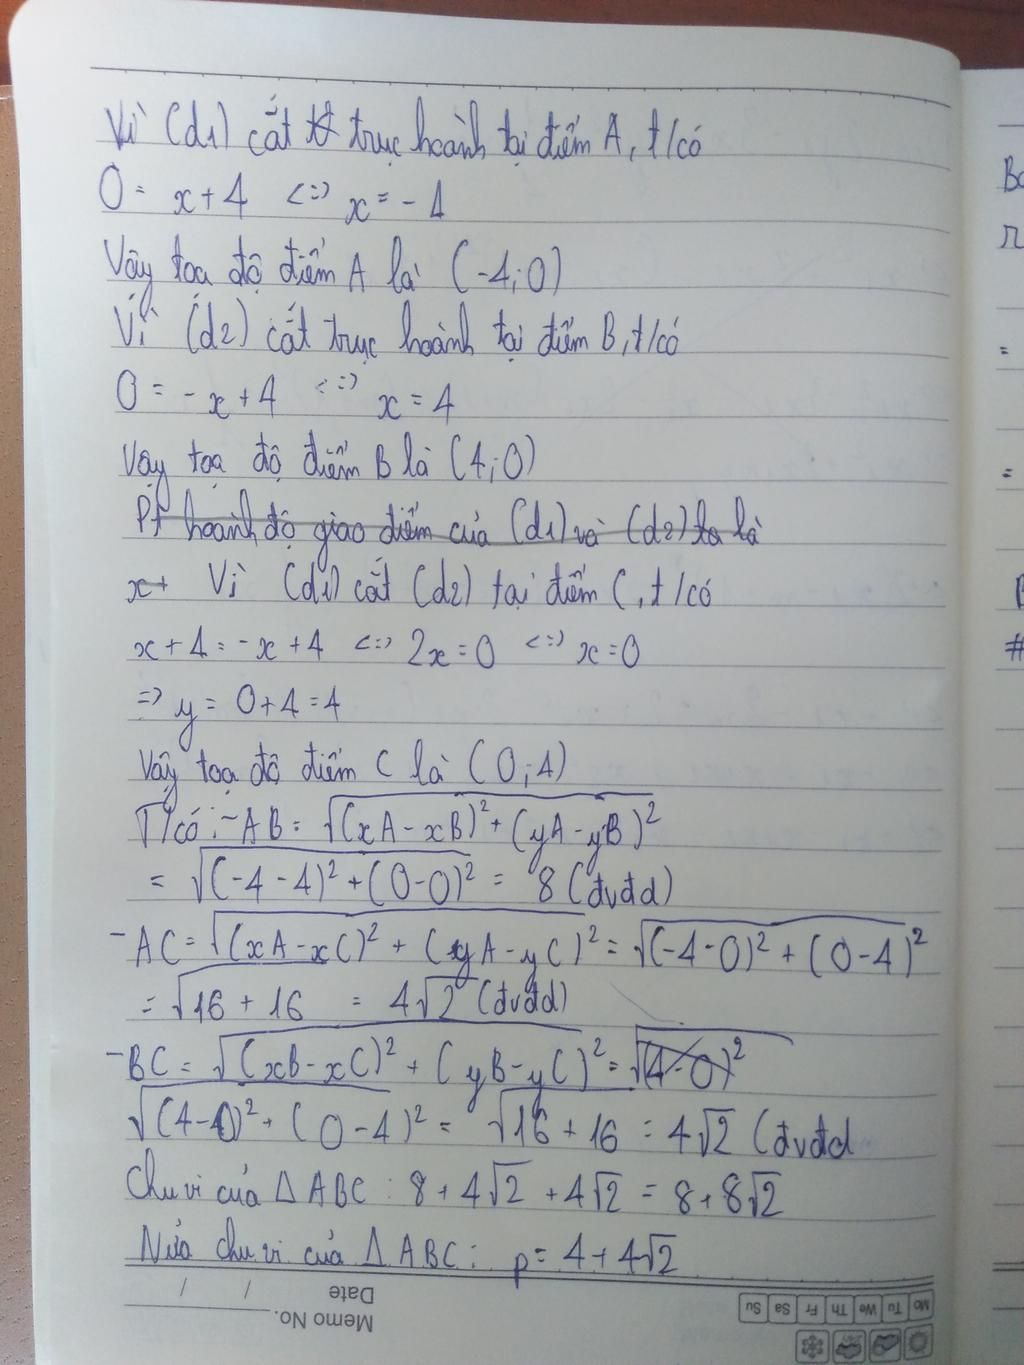 Vì (d1) cắt trục hoành tại điểm A, t/có
0 = x + 4 <=> x = - 4
Vậy tọa độ điểm A là (-4; 0)
Vì (d2) cắt trục hoành tại điểm B, t/có
0 = - x + 4 <=> x = 4
Vậy tọa độ điểm B là (4; 0)
Pt hoành độ giao điểm của (d1) và (d2) ta là
x+ Vì (d1) cắt (d2) tại điểm C, t/có
x + 4 = - x + 4 <=> 2x = 0 <=> x = 0
=> y = 0 + 4 = 4
Vậy tọa độ điểm C là (0; 4)
T/có: - AB = √(xA - xB)² + (yA - yB)²
= √(-4 - 4)² + (0 - 0)² = 8 (đvđd)
- AC = √(xA - xC)² + (yA - yC)² = √(-4 - 0)² + (0 - 4)²
= √16 + 16 = 4√2 (đvđd)
- BC = √(xB - xC)² + (yB - yC)² = √(4 - 0)²
√(4 - 0)² + (0 - 4)² = √16 + 16 = 4√2 (đvđd
Chu vi của Δ ABC : 8 + 4√2 + 4√2 = 8 + 8√2
Nửa chu vi của Δ ABC : p = 4 + 4√2
Memo No.
Date / /
Mo Tu We Th Fr Sa Su
Bo
=
=
#